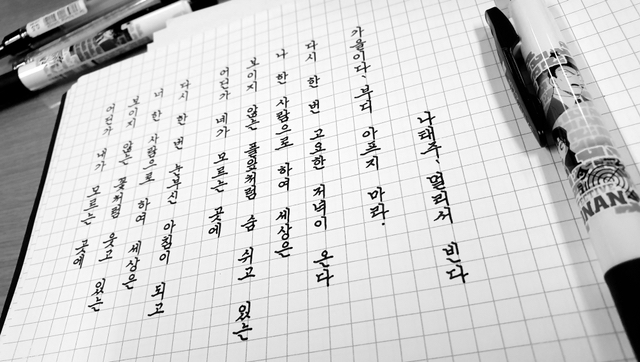 어딘가 내가 모르는 곳에
보이지 않는 꽃처럼 웃고 있는
너 한 사람으로 하여 세상은
다시 한 번 눈부신 아침이 되고
어딘가 네가 모르는 곳에
보이지 않는 풀잎처럼 숨 쉬고 있는
나 한 사람으로 하여 세상은
다시 한 번 고요한 저녁이 온다
가을이다, 부디 아프지 마라.
나태주, 멀리서 빈다